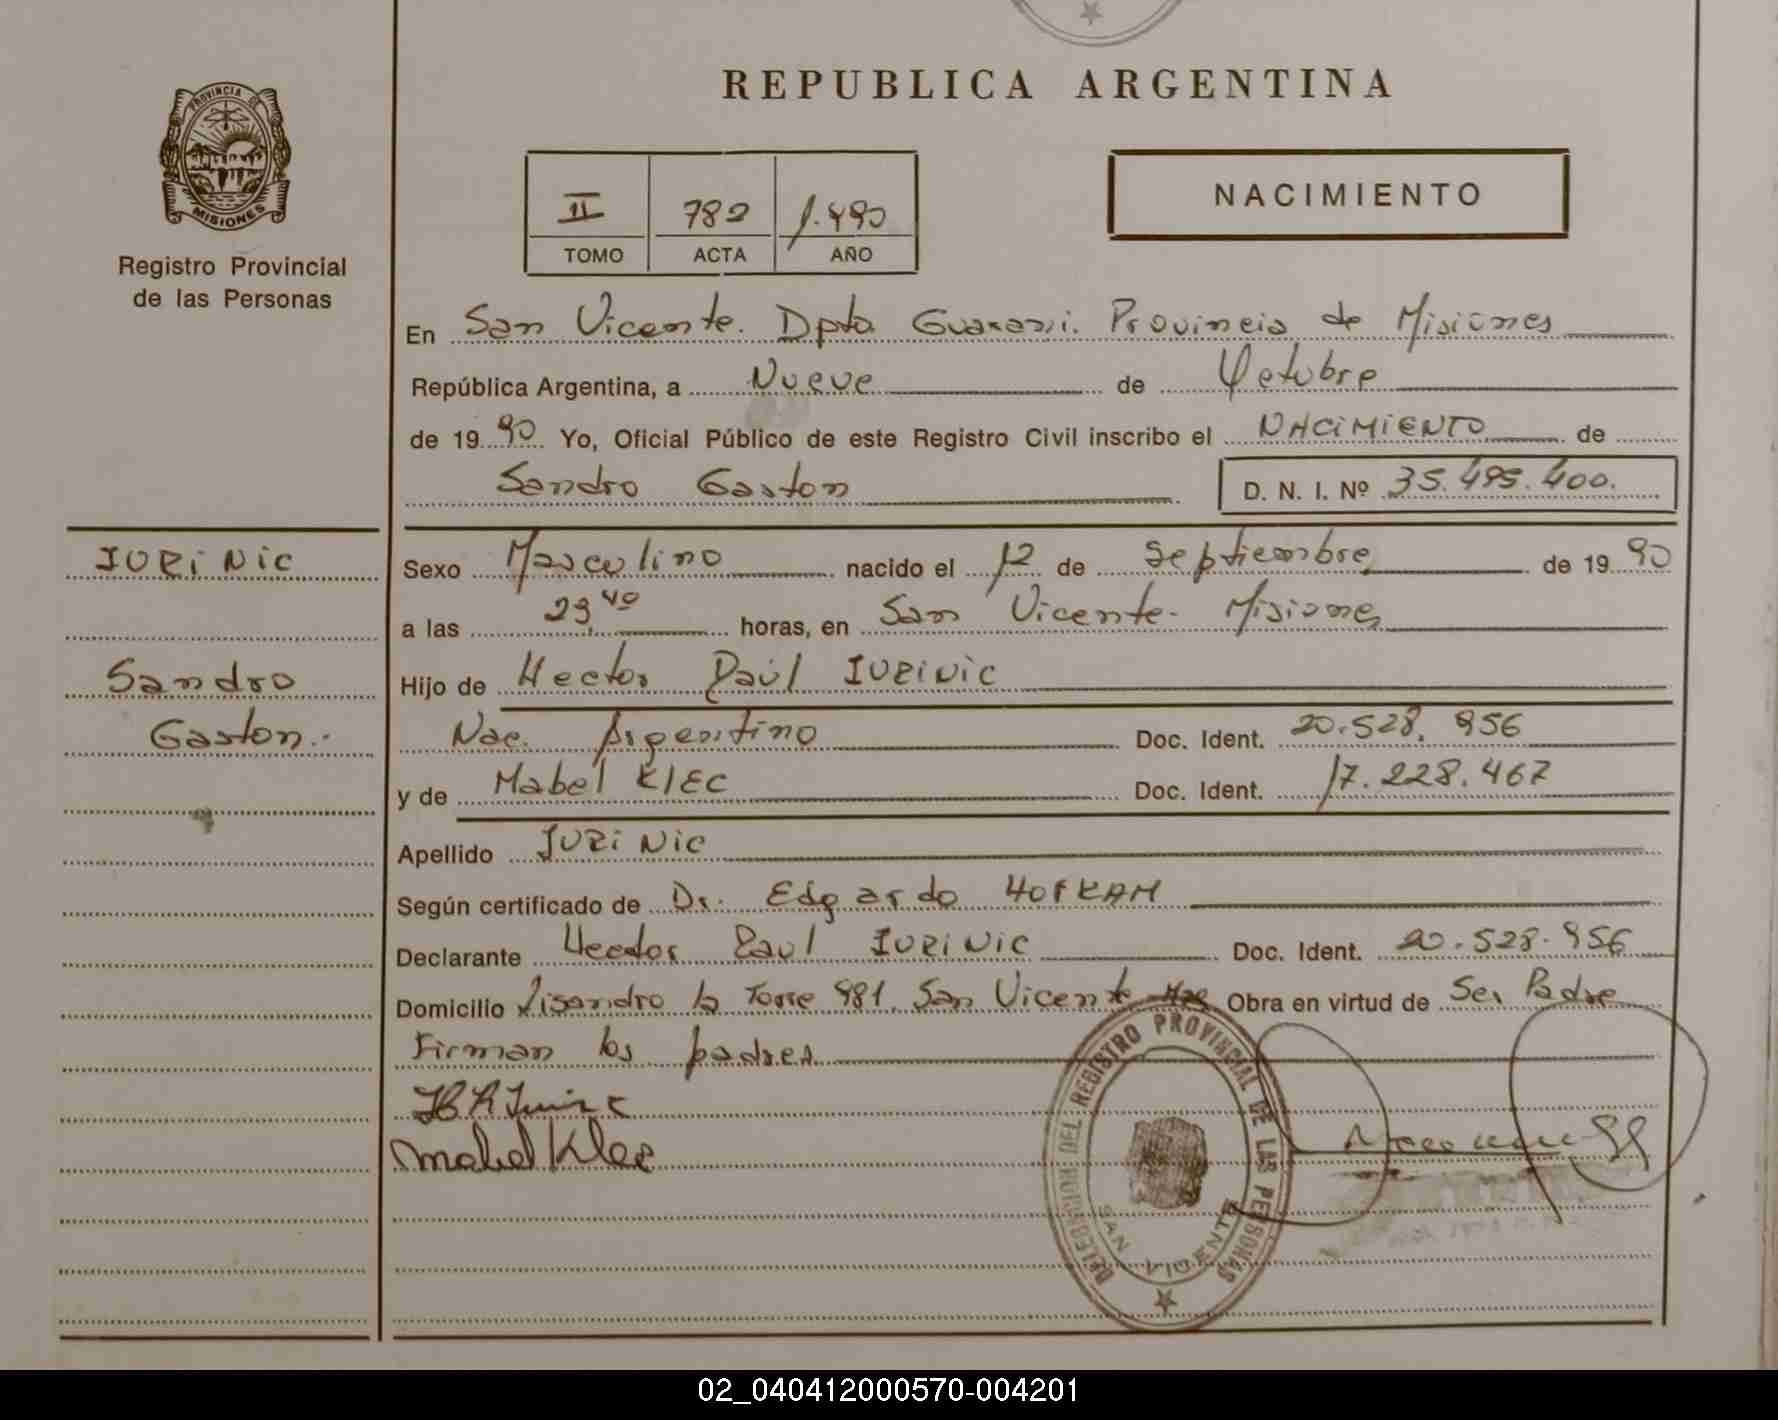 REPUBLICA ARGENTINA
PROVINCIA DE
MISIONES
Registro Provincial
de las Personas
II 782 1.990
TOMO ACTA AÑO
NACIMIENTO
En San Vicente. Dpto. Guarani. Provincia de Misiones
República Argentina, a Nueve de Octubre
de 1990 Yo, Oficial Público de este Registro Civil inscribo el NACIMIENTO de
Sandro Gaston D. N. I. Nº 35.495.400.
IURINIC
Sandro
Gaston.-
Sexo Masculino nacido el 12 de Septiembre de 1990
a las 23,40 horas, en San Vicente- Misiones
Hijo de Hector Raúl IURINIC
Nac. Argentino Doc. Ident. 20.528.956
y de Mabel KLEC Doc. Ident. 17.228.467
Apellido IURINIC
Según certificado de Dr. Edgardo HOFKAM
Declarante Hector Raul IURINIC Doc. Ident. 20.528.956
Domicilio Lisandro la Torre 981. San Vicente Obra en virtud de Ser Padre
Firman los padres
Mabel Klec
DELEGACION DEL REGISTRO PROVINCIAL DE LAS PERSONAS
SAN VICENTE
02_040412000570-004201